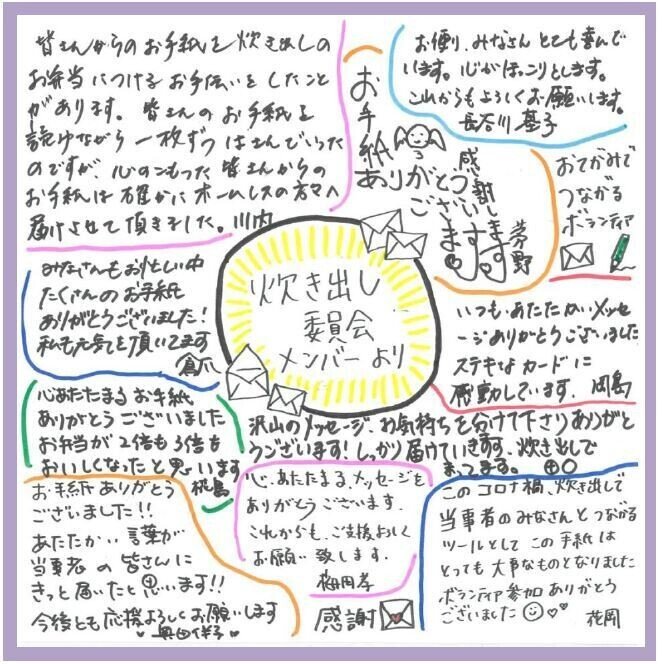 皆さんからのお手紙を炊き出しの
お弁当につけるお手伝いをしたこと
があります。皆さんのお手紙を
読みながら一枚ずつはさんでいった
のですが、心のこもった皆さんからの
お手紙は確かにホームレスの方々へ
届けさせて頂きました。川内
お手紙
ありがとう
ございます
感謝します
茅野
お便り、みなさんとても喜んで
います。心がほっこりとします。
これからもよろしくお願いします。
長谷川基子
おてがみで
つながる
ボランティア
みなさんもお忙しい中
たくさんのお手紙
ありがとうございました!
私も元気を頂いてます
炊き出し
委員会
メンバーより
いつも、あたたかいメッセ
ージありがとうございました
ステキなカードに
感動しています。田島
心あたたまるお手紙
ありがとうございました
お弁当が2倍も3倍も
おいしくなったと思います
椛島
沢山のメッセージ、お気持ちを分けて下さりありがと
うございます!しっかり届けていきます。炊き出しで
まってます。
お手紙ありがとう
ございました!!
あたたかい言葉が
当事者の皆さんに
きっと届いたと思います!!
今後とも応援よろしくお願いします
奥田伴子
心、あたたまるメッセージを
ありがとうございます。
これからも、ご支援よろしく
お願い致します。
梅田孝
感謝
このコロナ禍、炊き出しで
当事者のみなさんとつながる
ツールとしてこの手紙は
とっても大事なものとなりました
ボランティア参加ありがとう
ございました
花岡